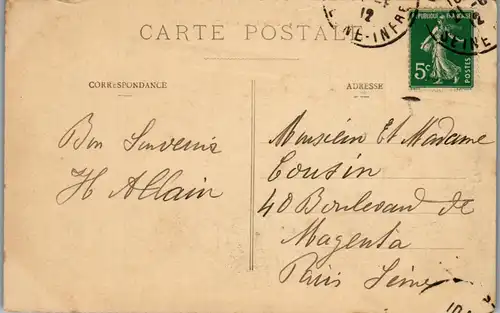 CARTE POSTALE
12
NE-INFRE
12
SEINE
REPUBLIQUE FRANÇAISE
5c
POSTES
CORRESPONDANCE
ADRESSE
Bon Souvenir
H Allain
Monsieur Et Madame
Cousin
40 Boulevard de
Magenta
Paris Seine